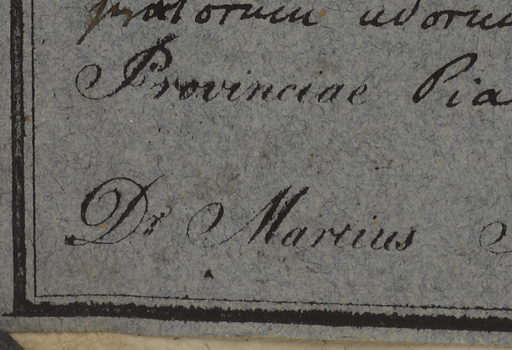 pratorum udoru
Provinciae Pia
Dr Martius